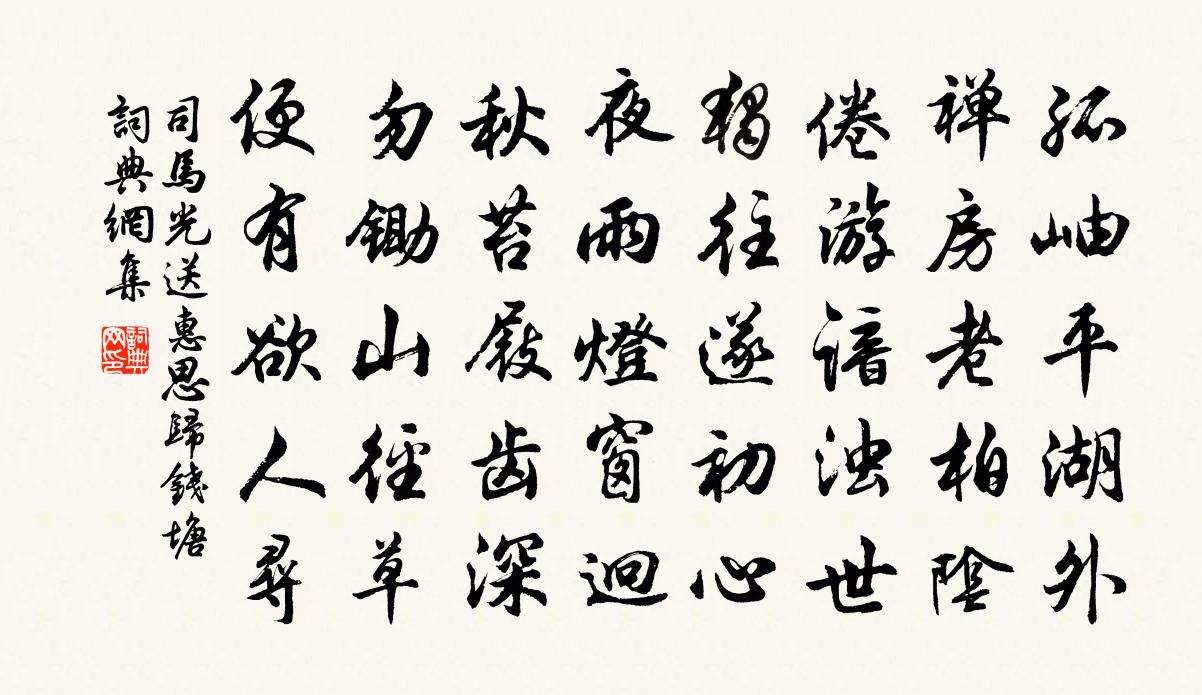 孤岫平湖外
禅房老柏陰
倦游諳浊世
獨往遂初心
夜雨燈窗迥
秋苔屐齿深
勿鋤山徑草
便有欲人尋
司馬光送惠思歸錢塘
詞典網集
詞典网印